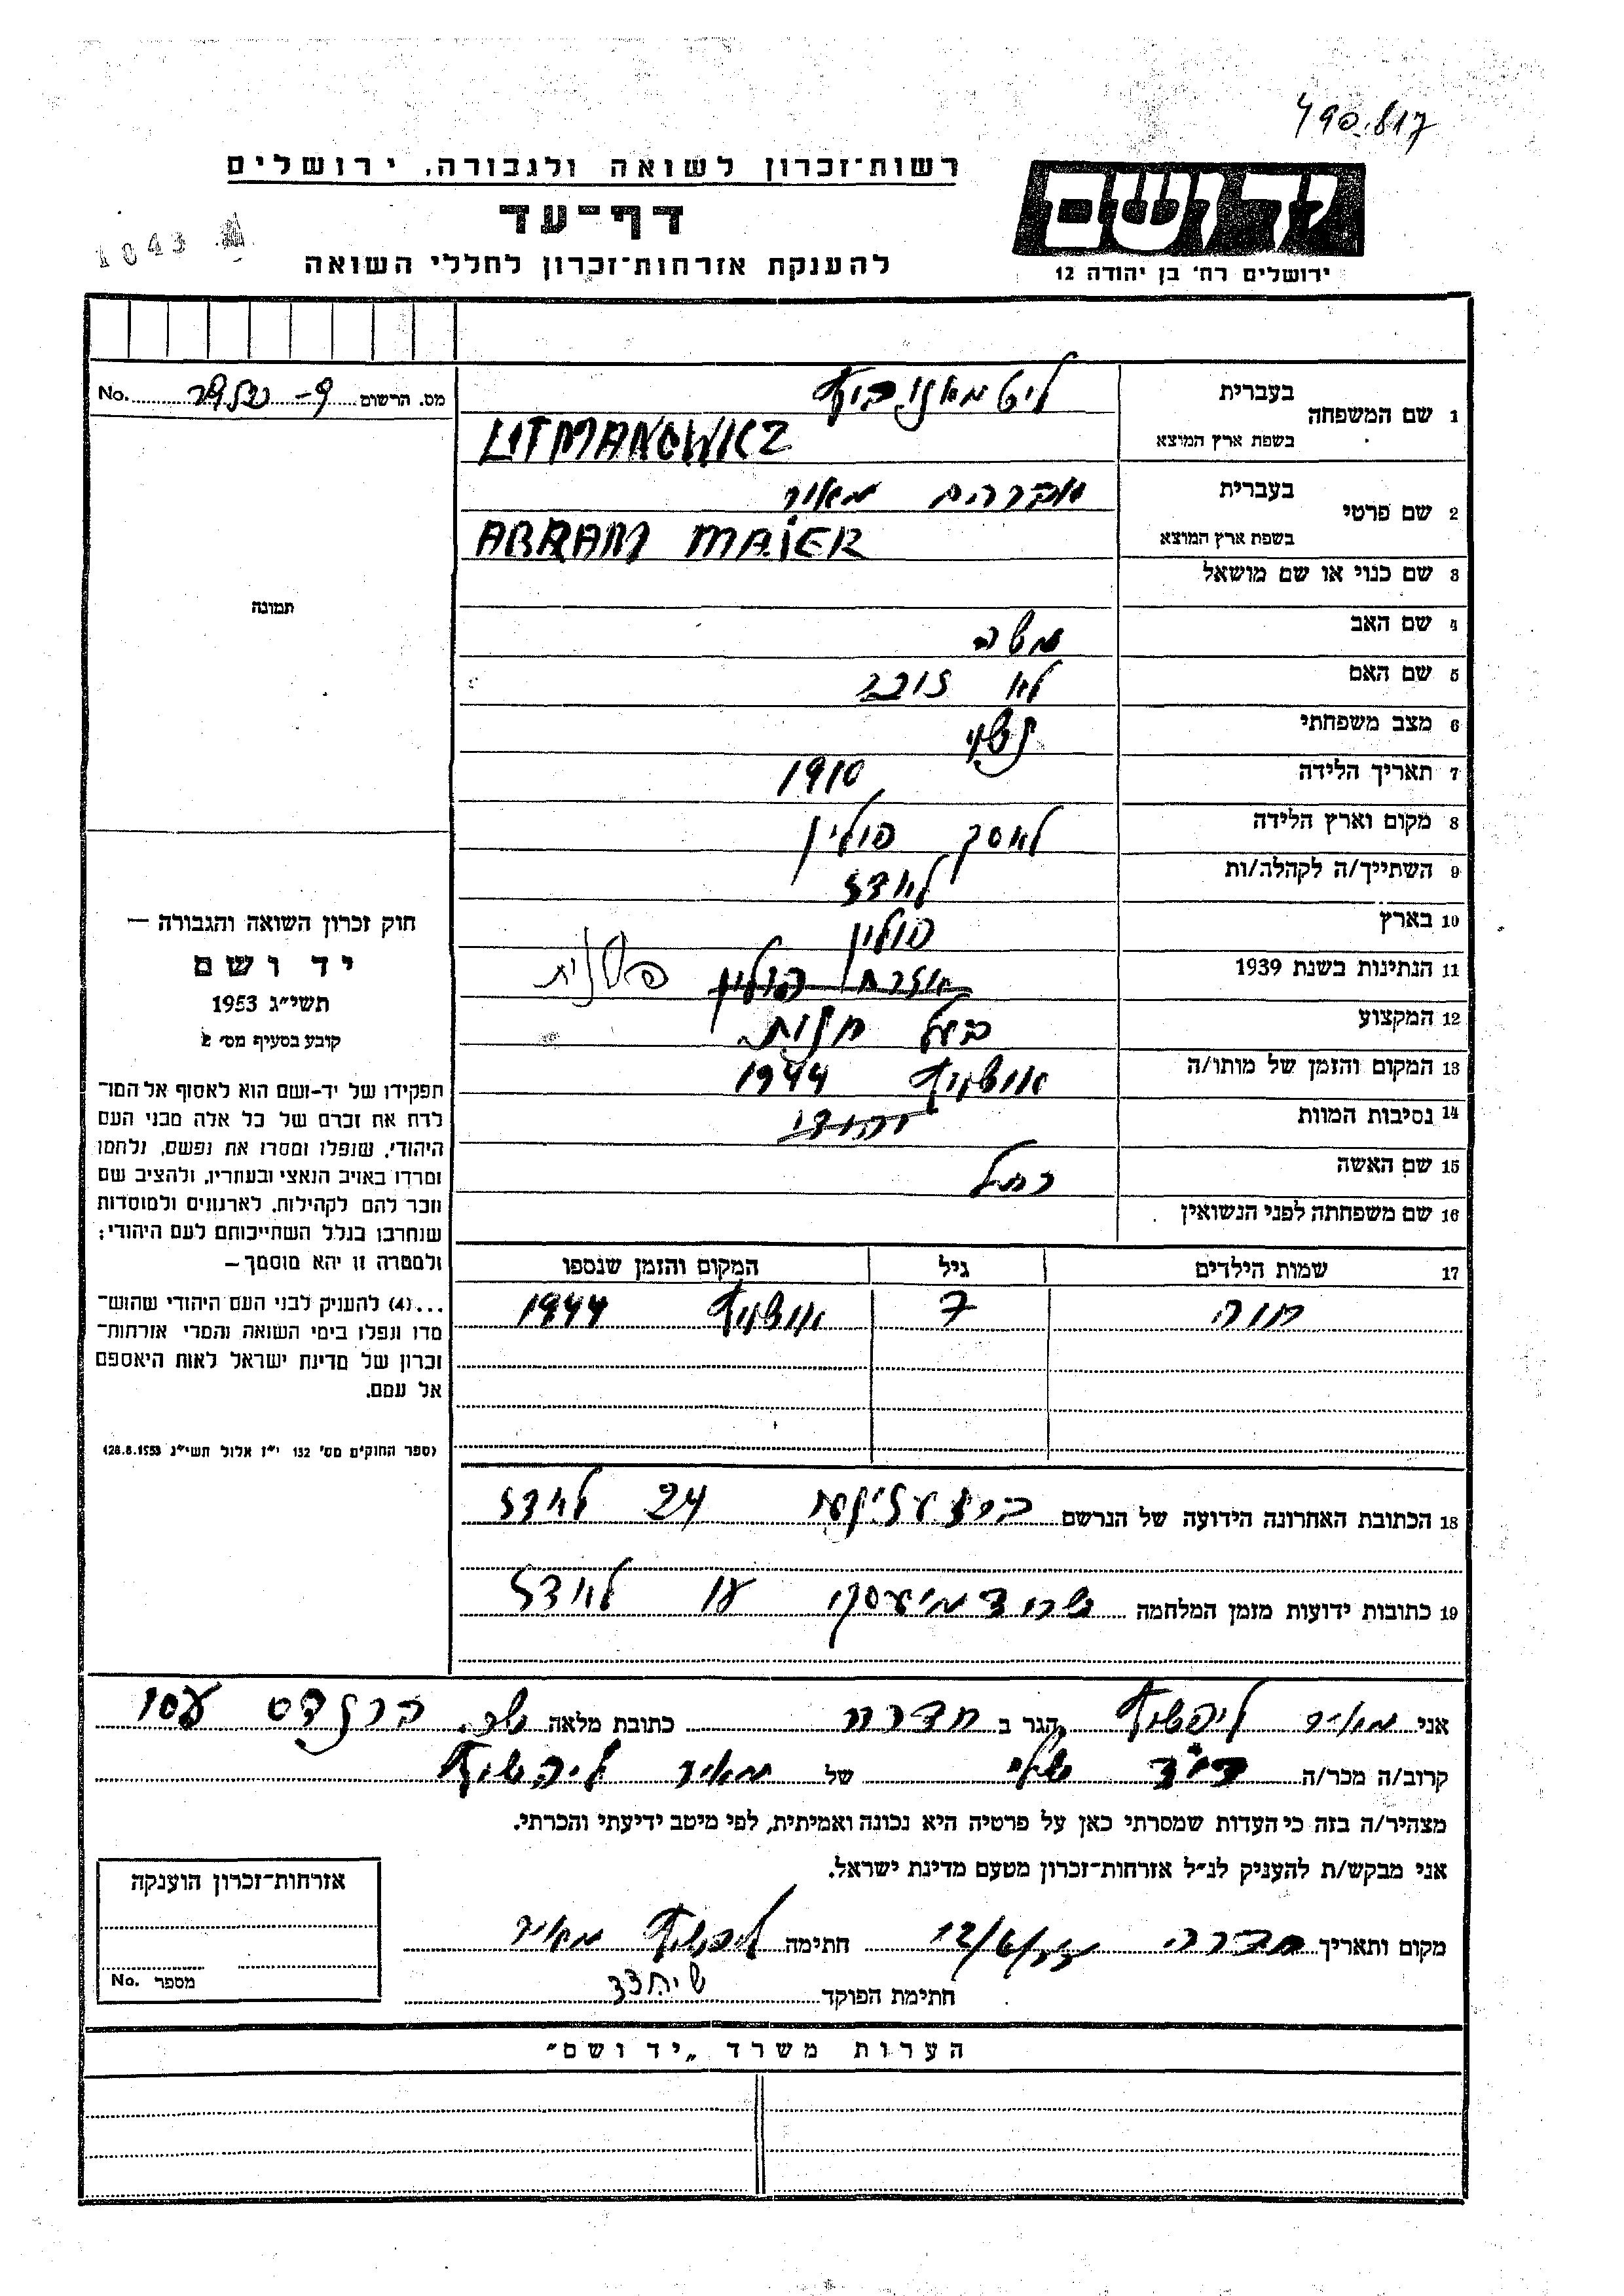 490.817
רשות־זכרון לשואה ולגבורה, ירושלים
דף־עד
להענקת אזרחות־זכרון לחללי השואה
יד ושם
ירושלים רח׳ בן יהודה 12
1043
מס. הרשום No.
1 שם המשפחה בעברית ליטמאנוביץ
בשפת ארץ המוצא LITMANOWICZ
2 שם פרטי בעברית אברהם מאיר
בשפת ארץ המוצא ABRAM MAIER
3 שם כנוי או שם מושאל
4 שם האב משה
5 שם האם לא זוכר
6 מצב משפחתי נשוי
7 תאריך הלידה 1910
8 מקום וארץ הלידה לאסק פולין
9 השתייך/ה לקהלה/ות לאדז
10 בארץ פולין
11 הנתינות בשנת 1939 אזרח פולין פולנית
12 המקצוע בעל חנות
13 המקום והזמן של מותו/ה אושוויץ 1944
14 נסיבות המוות יהודי
15 שם האשה רחל
16 שם משפחתה לפני הנשואין
17 שמות הילדים גיל המקום והזמן שנספו
חוה 7 אושוויץ 1944
תמונה
חוק זכרון השואה והגבורה —
יד ושם
תשי״ג 1953
קובע בסעיף מס׳ 2
תפקידו של יד-ושם הוא לאסוף אל המו־
לדת את זכרם של כל אלה מבני העם
היהודי, שנפלו ומסרו את נפשם, נלחמו
ומרדו באויב הנאצי ובעוזריו, ולהציב שם
וזכר להם לקהילות, לארגונים ולמוסדות
שנחרבו בגלל השתייכותם לעם היהודי;
ולמטרה זו יהא מוסמך —
...(4) להעניק לבני העם היהודי שהוש־
מדו ונפלו בימי השואה והמרי אזרחות־
זכרון של מדינת ישראל לאות היאספם
אל עמם.
(ספר החוקים מס׳ 132 י״ז אלול תשי״ג 28.8.1953)
18 הכתובת האחרונה הידועה של הנרשם 24 לאדז
19 כתובות ידועות מזמן המלחמה לאדז
אני מאיר ליפשיץ הגר ב חדרה כתובת מלאה
קרוב/ה מכר/ה של מאיר ליפשיץ
מצהיר/ה בזה כי העדות שמסרתי כאן על פרטיה היא נכונה ואמיתית, לפי מיטב ידיעתי והכרתי.
אני מבקש/ת להעניק לנ״ל אזרחות־זכרון מטעם מדינת ישראל.
מקום ותאריך חדרה 12/6/55 חתימה ליפשיץ מאיר
חתימת הפוקד
אזרחות־זכרון הוענקה
מספר No.
הערות משרד „יד ושם״